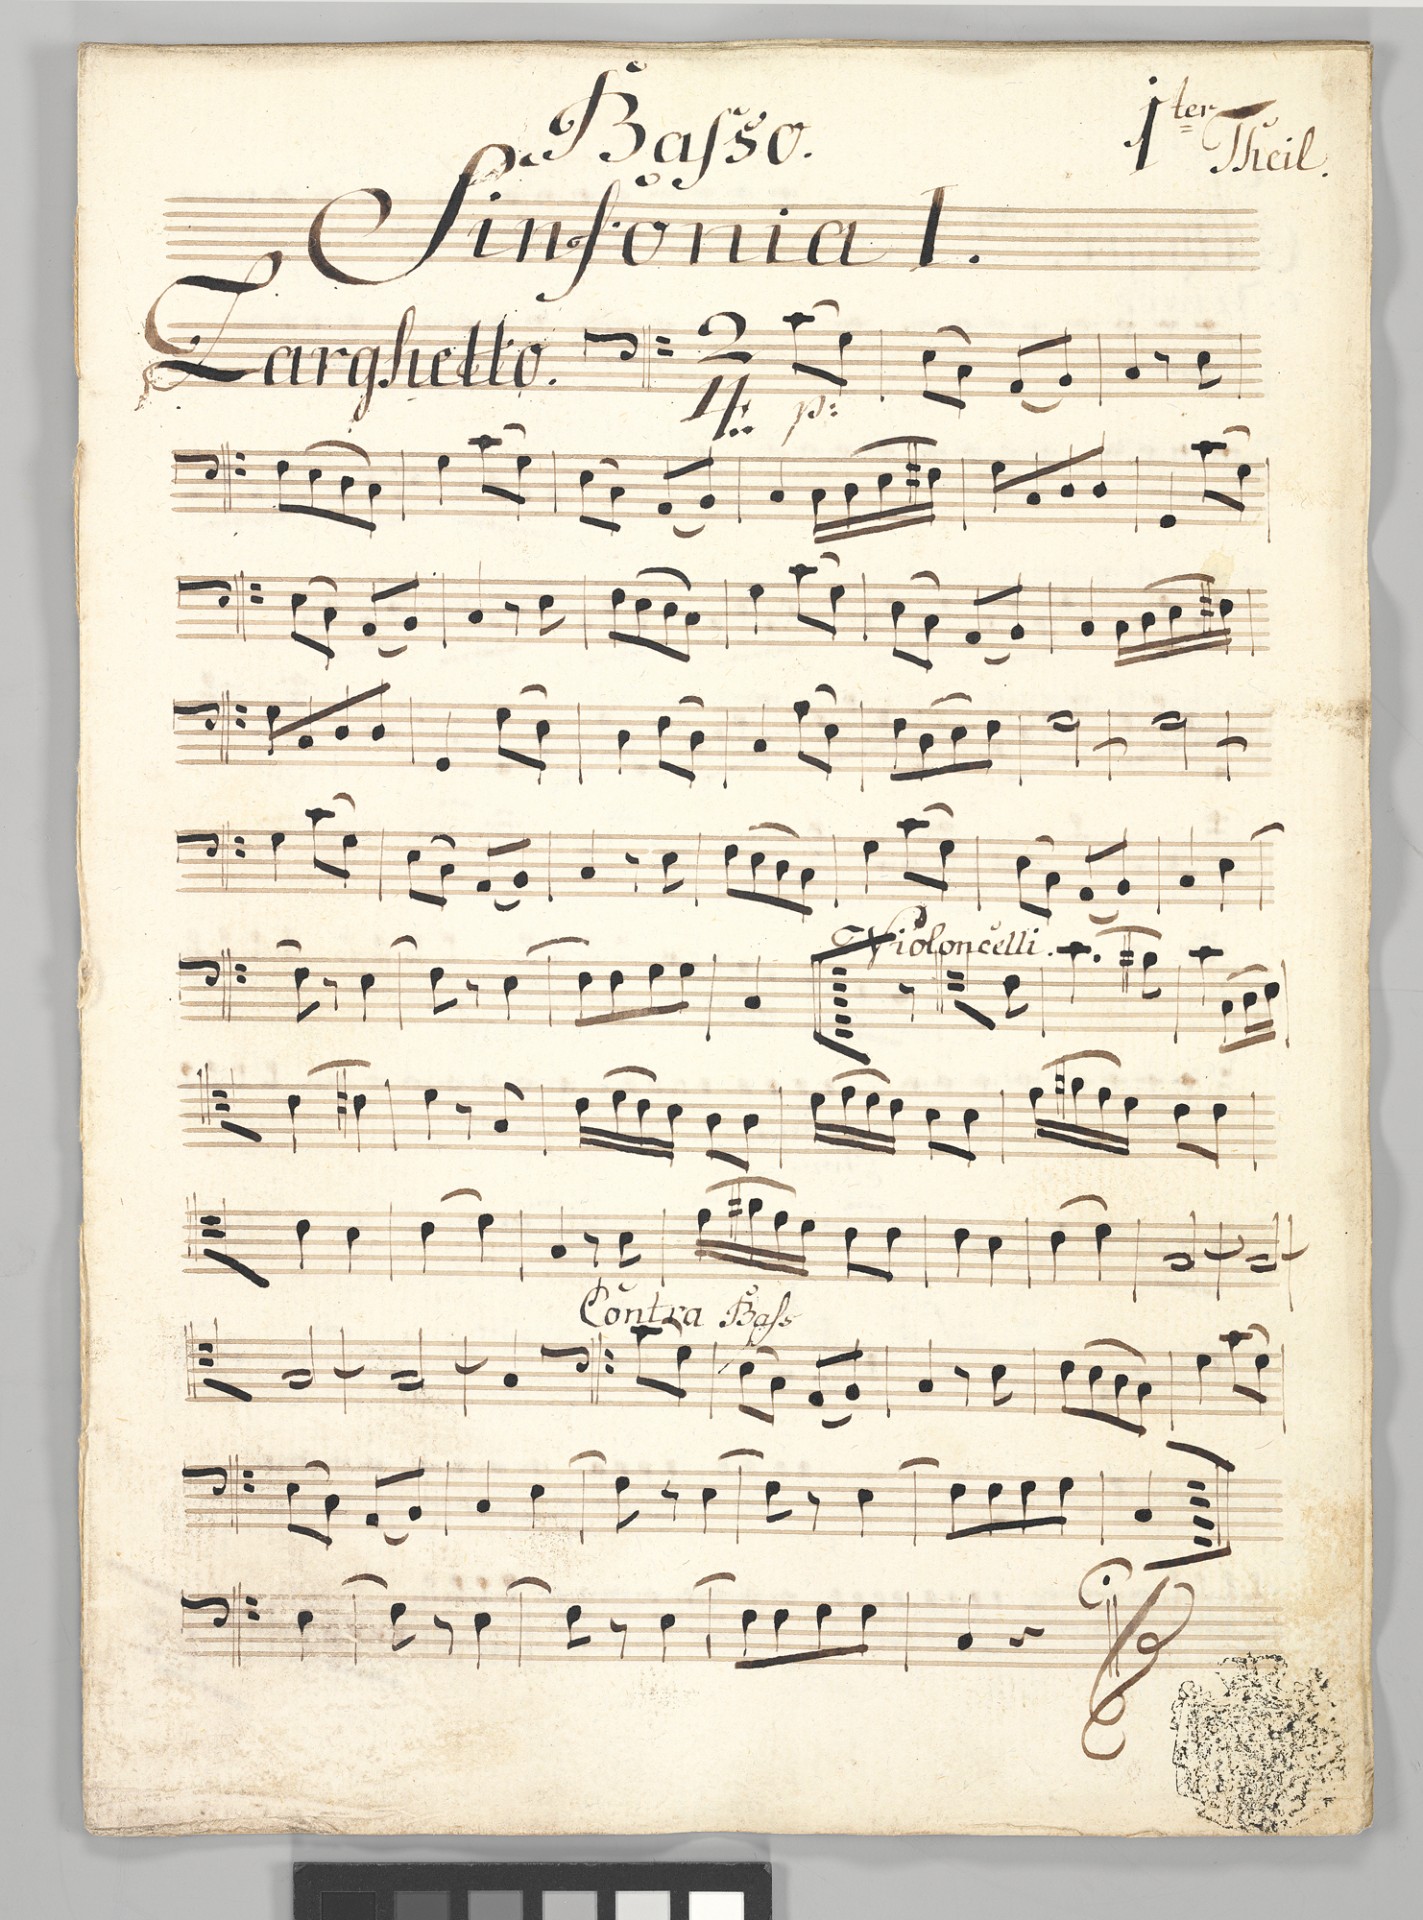 Basso.
1ter Theil.
Sinfonia I.
Larghetto.
2
4
p:
Violoncelli.
Contra Bass